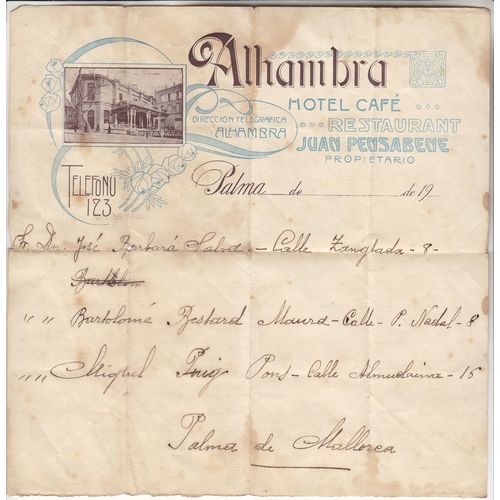 Alhambra
HOTEL CAFÉ
RESTAURANT
JUAN PENSABENE
PROPIETARIO
DIRECCION TELEGRAFICA
ALHAMBRA
TELEFONO
123
Palma de de 19
Sr. Dn. José Barbará Salvá - Calle Zanglada - 8 -
Bartolom
" " Bartolomé Bestard Maura - Calle - P. Nadal - 8
" " Miquel Puig Pons - Calle Almudaina - 15
Palma de Mallorca